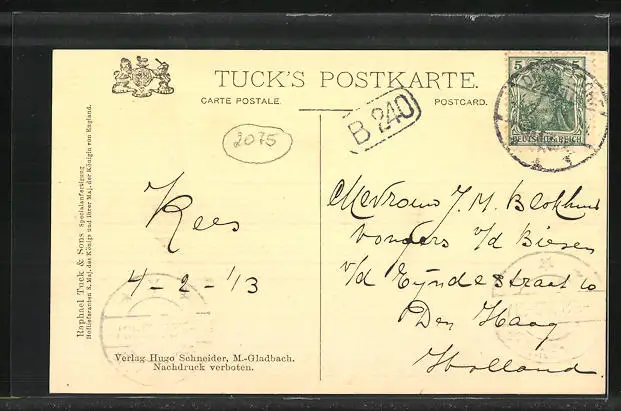 TUCK'S POSTKARTE.
CARTE POSTALE.
POSTCARD.
B 240
2075
5 5
DEUTSCHES REICH
Raphael Tuck & Sons Spezialanfertigung
Hoflieferanten S. Maj. des Königs und Ihrer Maj. der Königin von England.
Kees
4-2-'13
Mevrouw J. M. Blokhuis
v/d Biesen
v/d Eyndestraat 10
Den Haag
Holland.
Verlag Hugo Schneider, M.-Gladbach.
Nachdruck verboten.